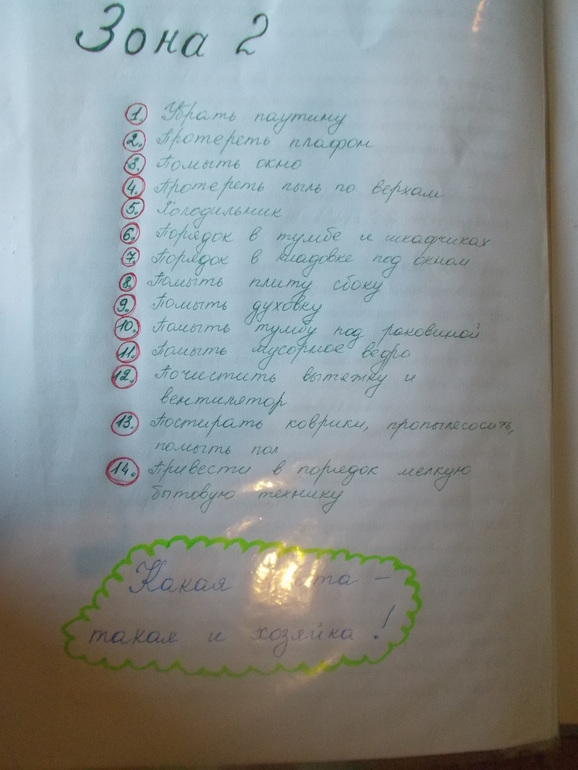 Зона 2
1. Убрать паутину
2. Протереть плафон
3. Помыть окно
4. Протереть пыль по верхам
5. Холодильник
6. Порядок в тумбе и шкафчиках
7. Порядок в кладовке под окном
8. Помыть плиту сбоку
9. Помыть духовку
10. Помыть тумбу под раковиной
11. Помыть мусорное ведро
12. Почистить вытяжку и
вентилятор
13. Постирать коврики, пропылесосить,
помыть пол
14. Привести в порядок мелкую
бытовую технику
Какая –
такая и хозяйка!